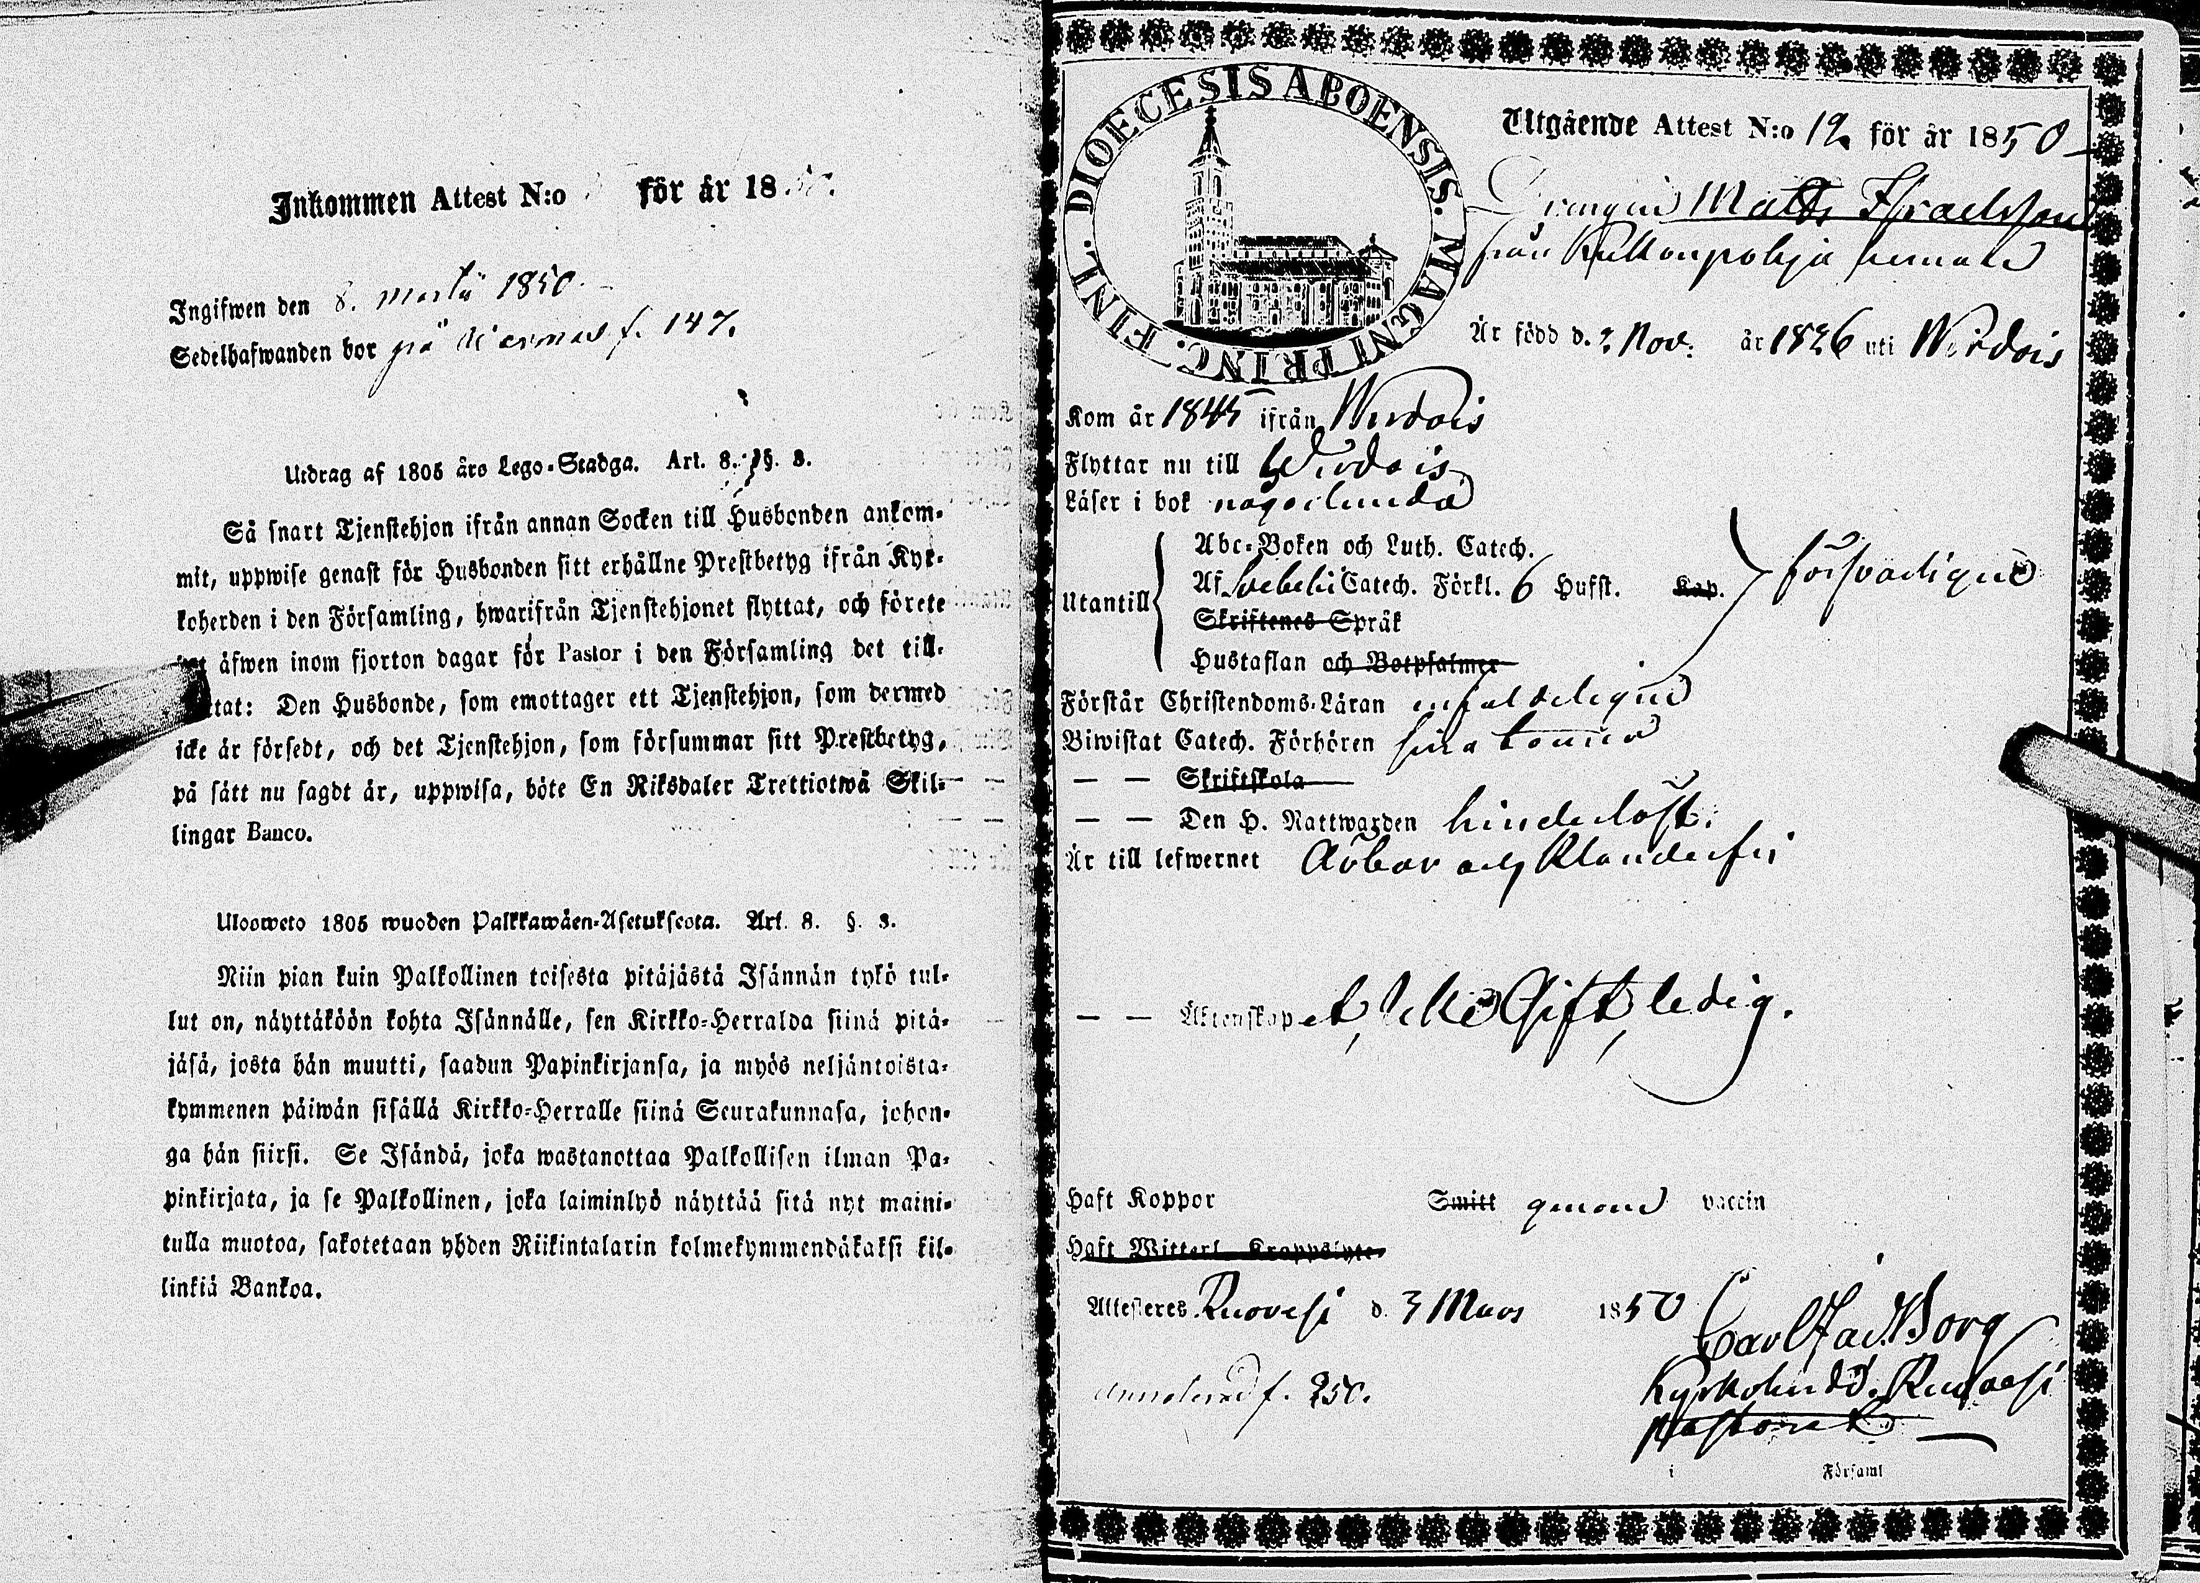 Inkommen Attest N:o för år 1850.
Ingifwen den 8. Martii 1850.
Sedelhafwanden bor på f. 147.
Utdrag af 1805 års Lego-Stadga. Art. 8. §. 3.
Så snart Tjenstehjon ifrån annan Socken till Husbonden ankom-
mit, uppwise genast för Husbonden sitt erhållne Prestbetyg ifrån Kyr-
koherden i den Församling, hwarifrån Tjenstehjonet flyttat, och förete
äfwen inom fjorton dagar för Pastor i den Församling det till-
Den Husbonde, som emottager ett Tjenstehjon, som dermed
icke är försedt, och det Tjenstehjon, som försummar sitt Prestbetyg,
på sätt nu sagdt är, uppwisa, böte En Riksdaler Trettiotwå Skil-
lingar Banco.
Ulosweto 1805 wuoden Palkkawäen-Asetuksesta. Art. 8. §. 3.
Niin pian kuin Palkollinen toisesta pitäjästä Isännän tykö tul-
lut on, näyttäköön kohta Isännälle, sen Kirkko-Herralda siinä pitä-
jäsä, josta hän muutti, saadun Papinkirjansa, ja myös neljäntoista-
kymmenen päiwän sisällä Kirkko-Herralle siinä Seurakunnasa, johon-
ga hän siirsi. Se Isändä, joka wastanottaa Palkollisen ilman Pa-
pinkirjata, ja se Palkollinen, joka laiminlyö näyttää sitä nyt maini-
tulla muotoa, sakotetaan yhden Riikintalarin kolmekymmendäkaksi kil-
linkiä Bankoa.
DIOECESIS ABOENSIS. MAGNI PRINC. FINL.
Utgående Attest N:o 12 för år 1850
Drengen Matts Israelsson
från Pekkanpohja hemman
Är född d. 2 Nov. år 1826 uti Wirdois
Kom år 1845 ifrån Wirdois
Flyttar nu till Wirdois
Läser i bok någorlunda
Utantill
Abc-Boken och Luth. Catech.
Af Svebelii Catech. Förkl. 6 Hufst. Kap.
Skriftenes Språk
Hustaflan och Botpsalmer
försvarligen
Förstår Christendoms-Läran enfaldeligen
Biwistat Catech. Förhören sina
— — Skriftskola
— — Den H. Nattwarden hinderlöst.
Är till lefwernet Ärbar och Klanderfri
— — Äktenskapet, icke Gift, ledig.
Haft Koppor Smitt genom vaccin
Haft Witterl. Kroppslyte
Attesteres Ruovesi d. 3 Mars 1850
Carl Borg
Kyrkoherde i Ruovesi
Pastorat
Annoterad f. 250.
i Församl